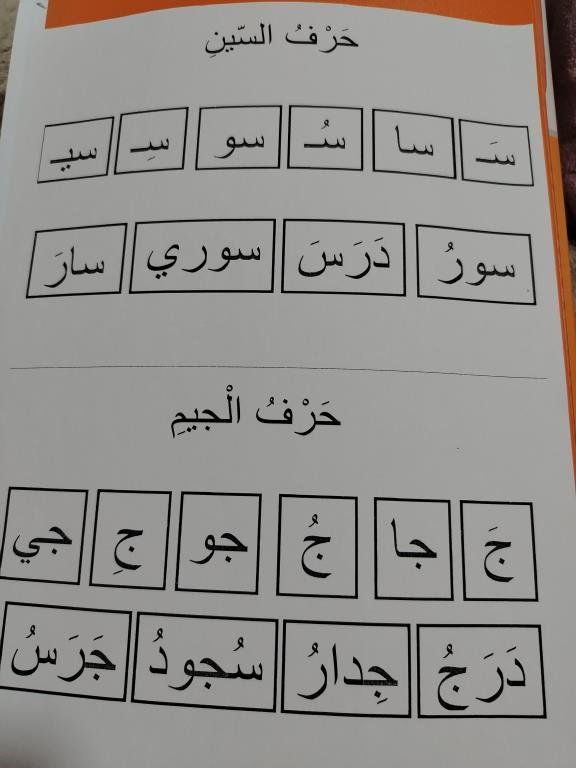 حَرْفُ السّينِ
سَـ سا سُـ سو سِـ سيـ
سورُ دَرَسَ سوري سارَ
حَرْفُ الْجيمِ
جَ جا جُ جو جِ جي
دَرَجُ جِدارُ سُجودُ جَرَسُ